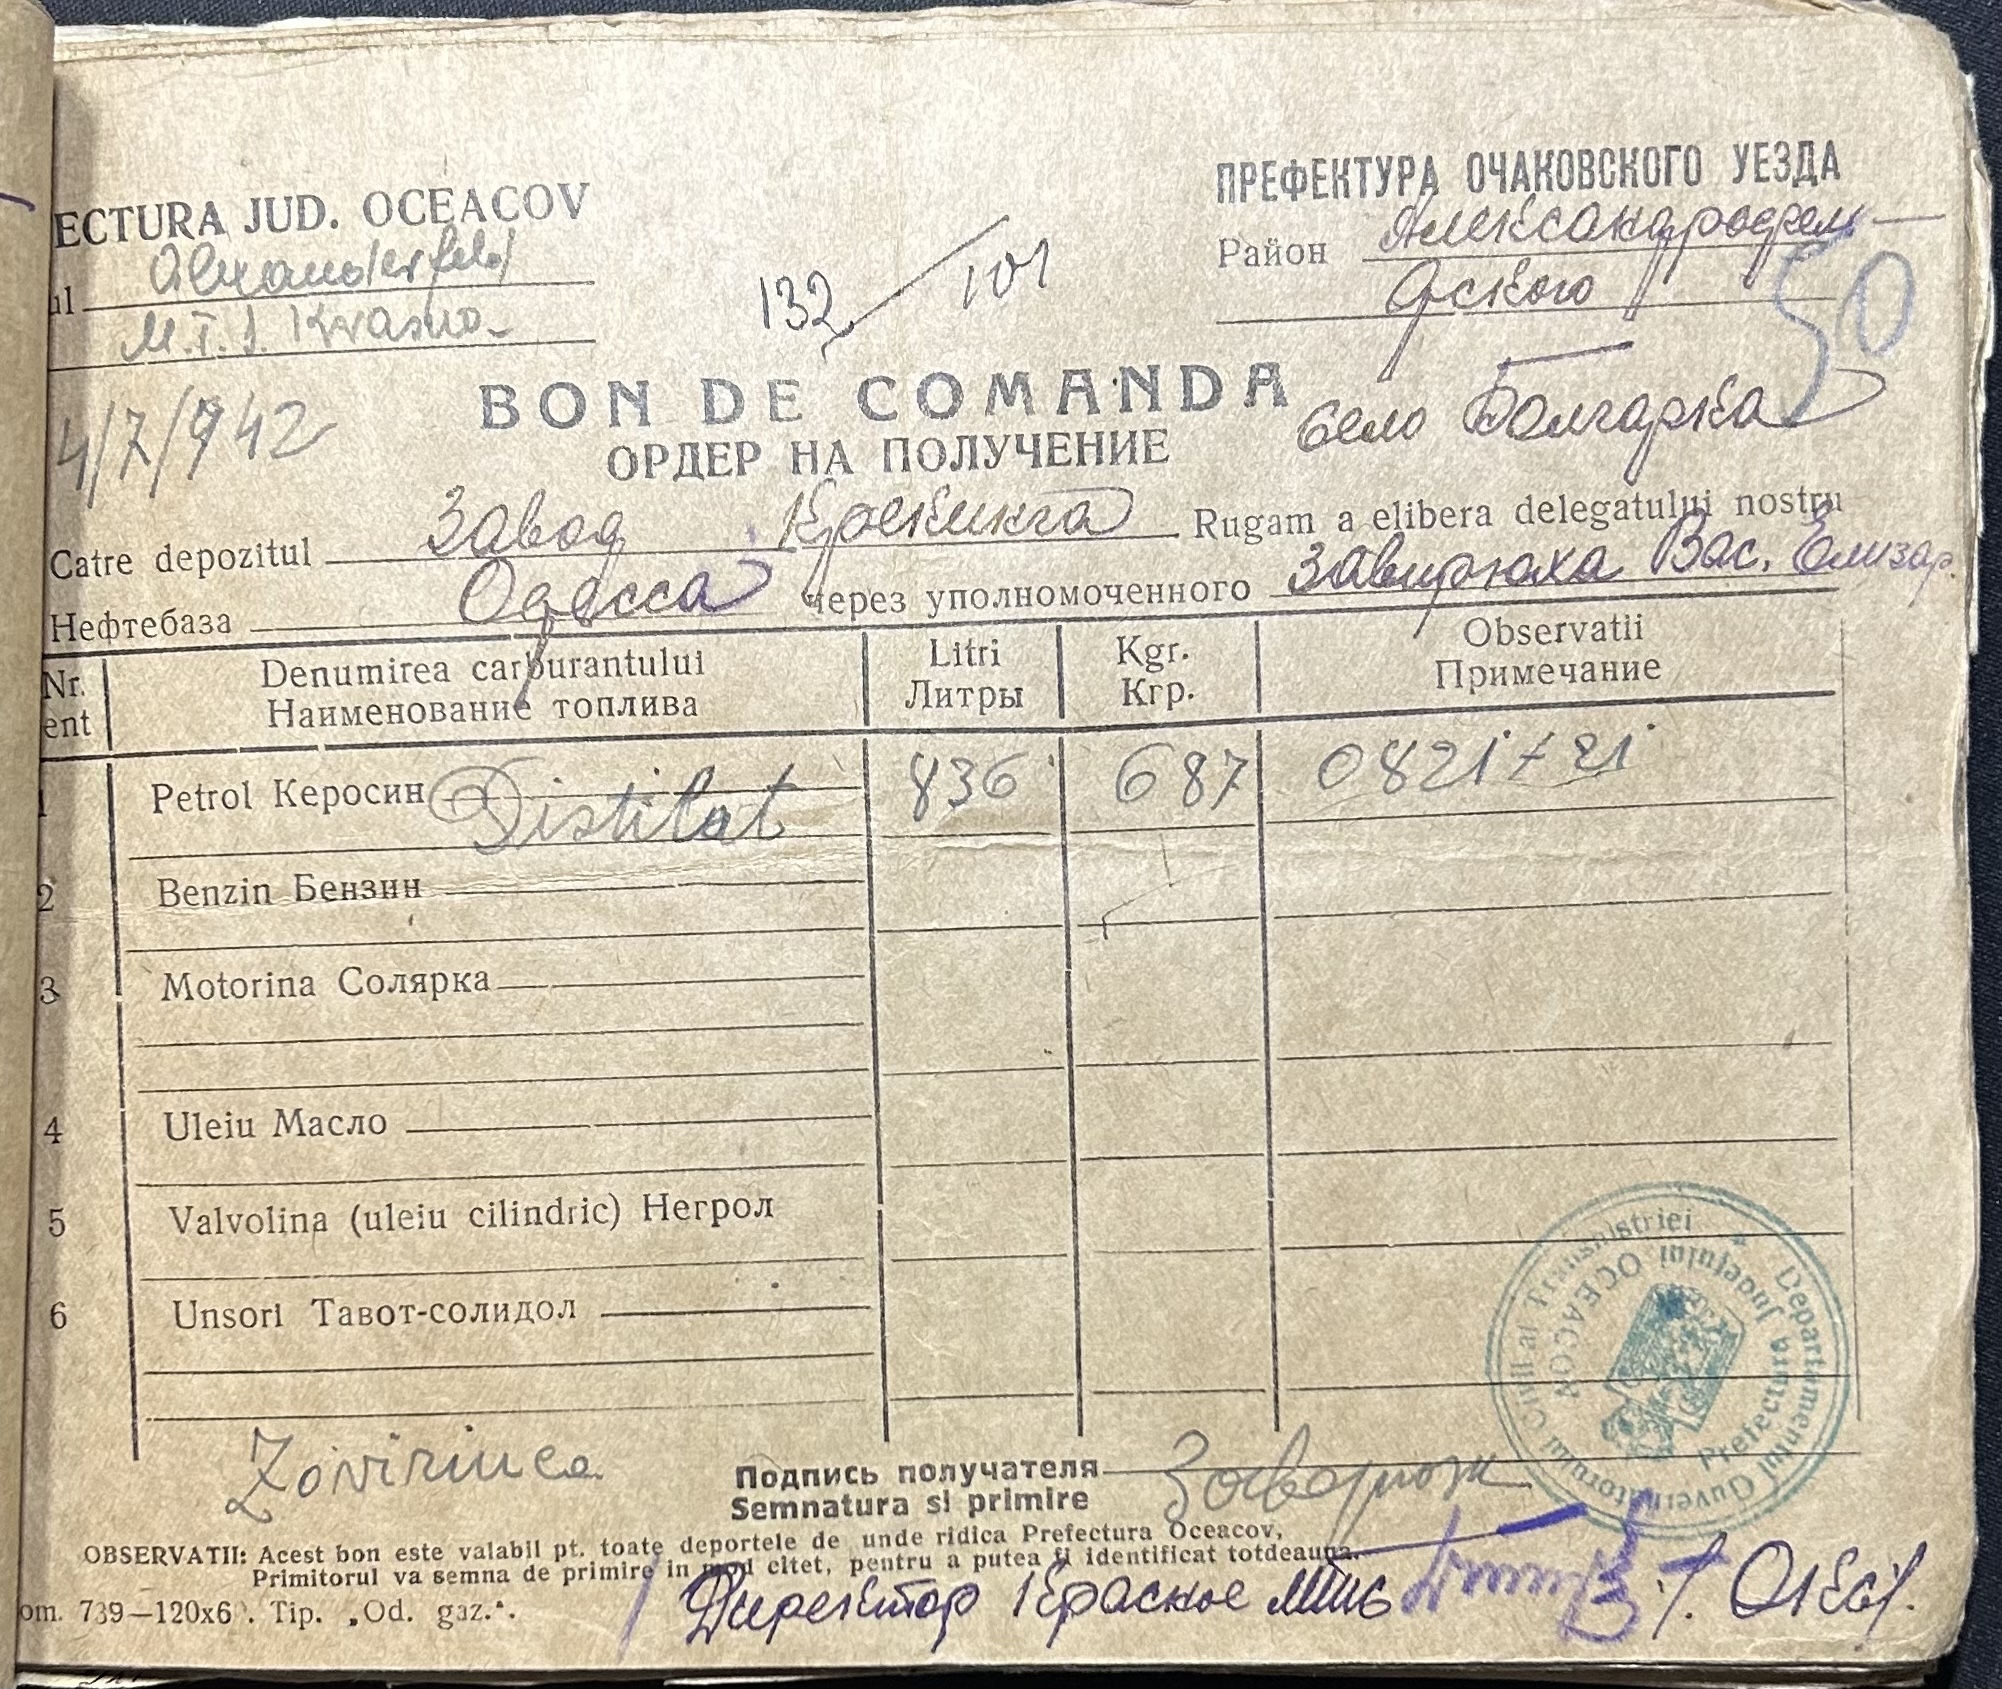 ECTURA JUD. OCEACOV
ul Alexanderfeld
M.T.S. Krasno-
4/7/942
132/101
ПРЕФЕКТУРА ОЧАКОВСКОГО УЕЗДА
Район Александрофель-
дского
50
село Болгарка
BON DE COMANDA
ОРДЕР НА ПОЛУЧЕНИЕ
Catre depozitul Завод Крекинга Rugam a elibera delegatului nostru
Нефтебаза Одесса через уполномоченного Завирюха Вас. Елизар.
Nr. ent
Denumirea carburantului
Наименование топлива
Litri
Литры
Kgr.
Кгр.
Observatii
Примечание
1 Petrol Керосин Distilat 836 687 0821 + 21
2 Benzin Бензин
3 Motorina Солярка
4 Uleiu Масло
5 Valvolina (uleiu cilindric) Негрол
6 Unsori Тавот-солидол
Guvernatorului Civil al Transnistriei * Departamentul
Prefectura Județului OCEACOV
Подпись получателя
Semnatura si primire
OBSERVATII: Acest bon este valabil pt. toate deportele de unde ridica Prefectura Oceacov,
Primitorul va semna de primire in mod citet, pentru a putea fi identificat totdeauna.
om. 739—120x6 . Tip. „Od. gaz.“.
Директор Красное МТС